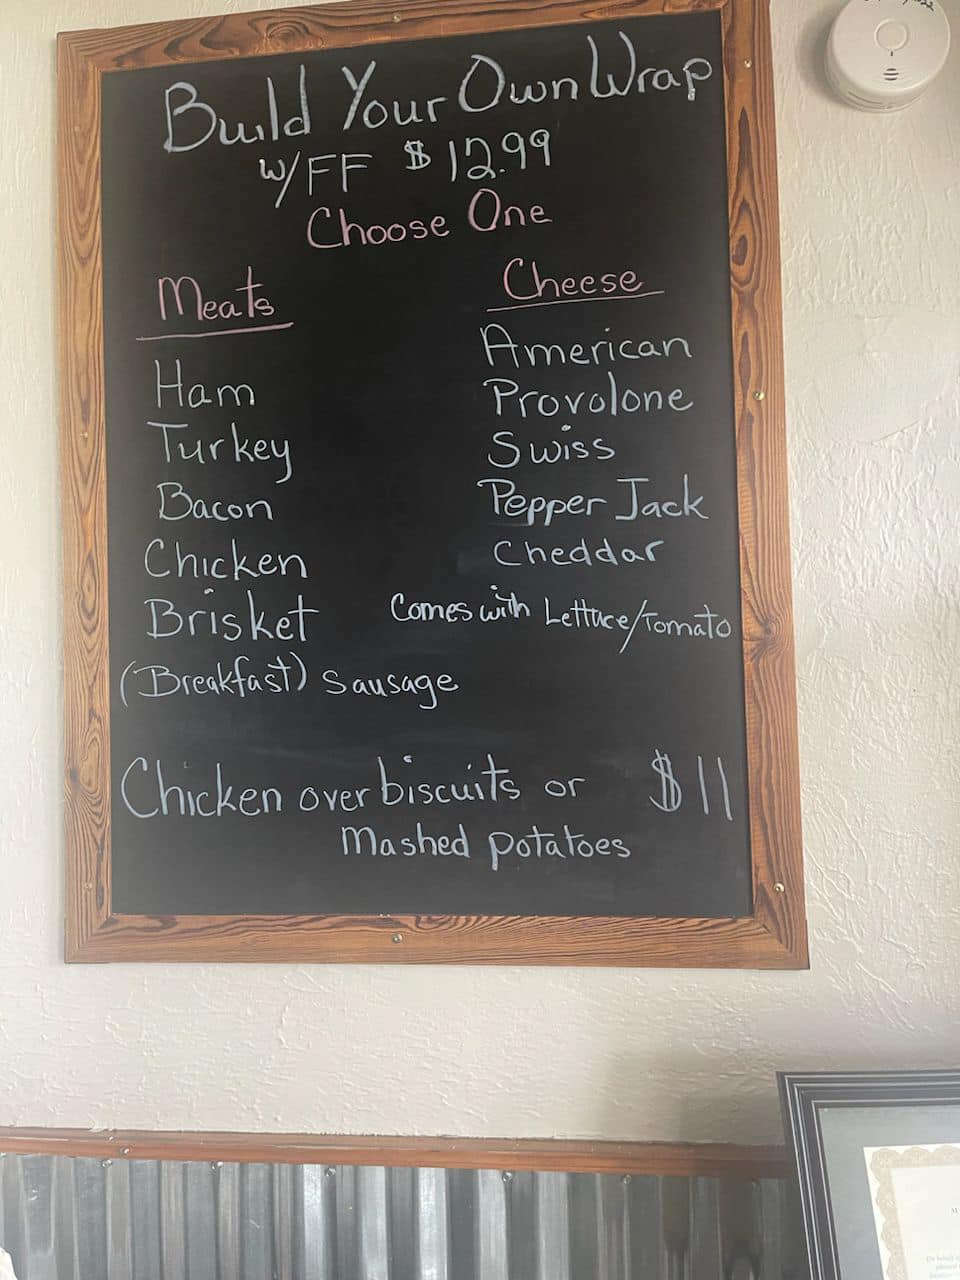 Build Your Own Wrap
w/FF $12.99
Choose One
Meats
Ham
Turkey
Bacon
Chicken
Brisket
(Breakfast) Sausage
Cheese
American
Provolone
Swiss
Pepper Jack
Cheddar
Comes with Lettuce/Tomato
Chicken over biscuits or $11
Mashed potatoes